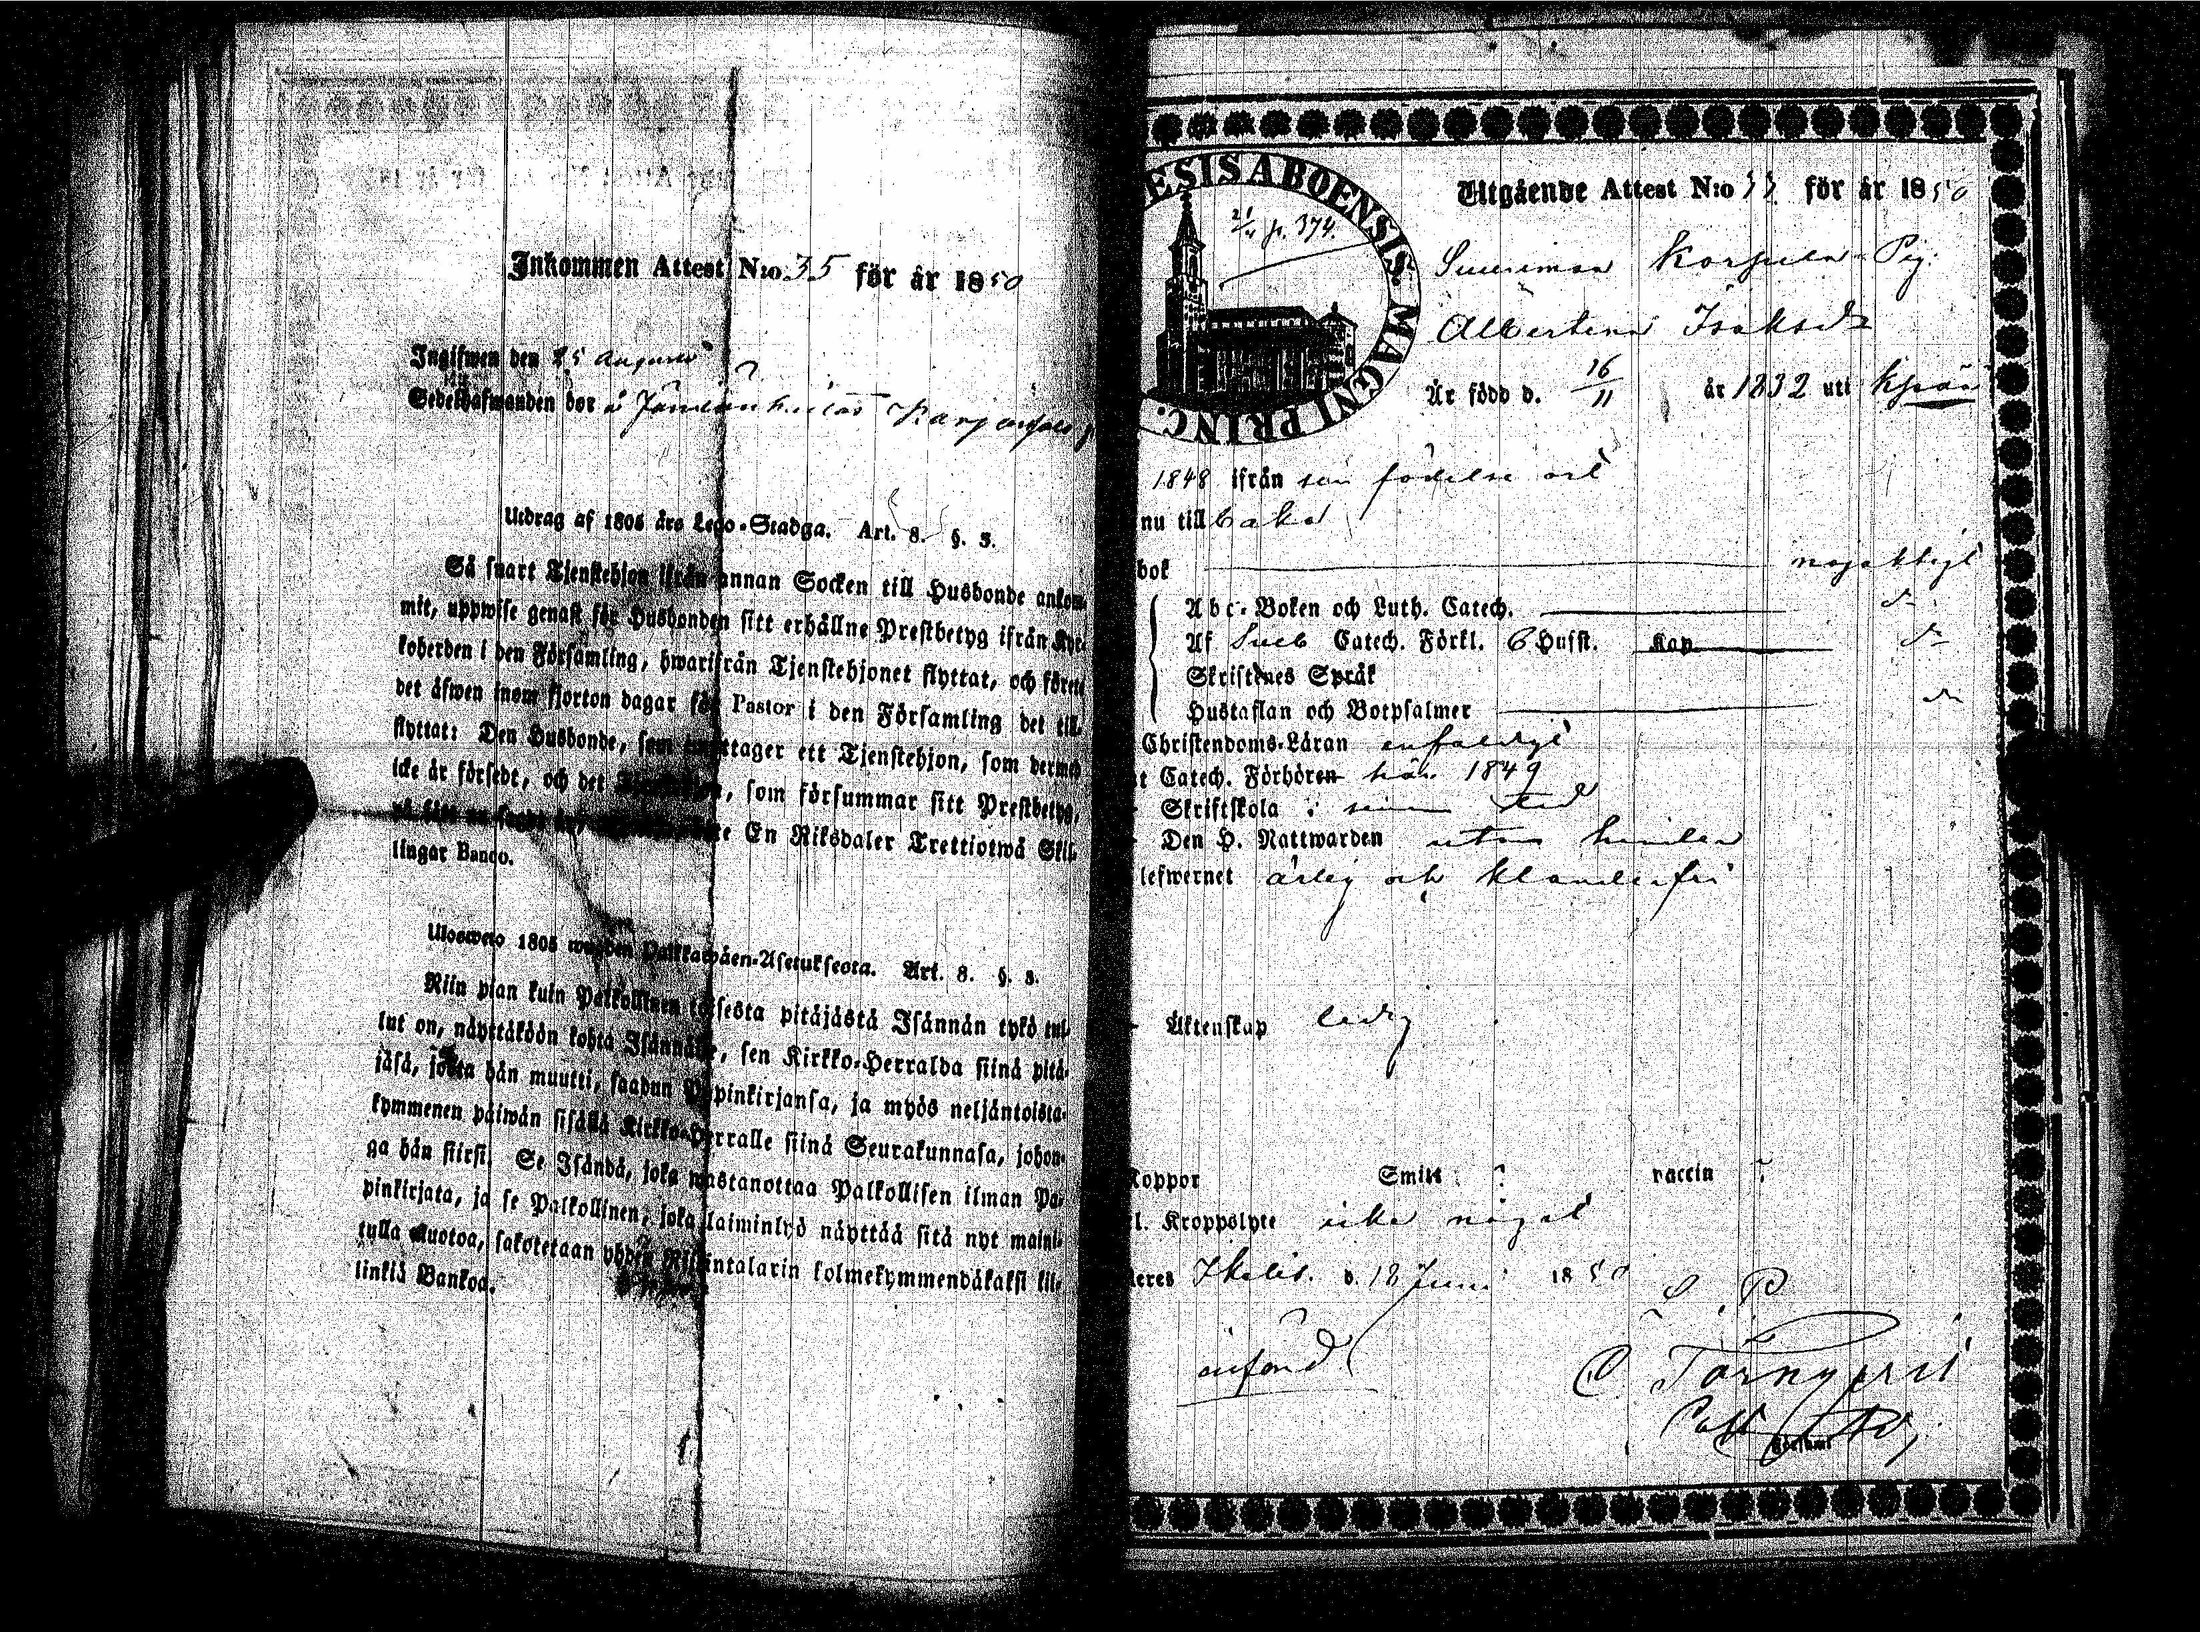 Inkommen Attest N:o 35 för år 1850
Ingifwen den 25 Augusti
Sedelhafwanden bor å
Utdrag af 1805 års Lego-Stadga. Art. 8. §. 3.
Så snart Tjenstehjon ifrån annan Socken till Husbonde ankom-
mit, uppwise genast för Husbonden sitt erhållne Prestbetyg ifrån Kyr-
koherden i den Församling, hwarifrån Tjenstehjonet flyttat, och förete
det äfwen inom fjorton dagar för Pastor i den Församling det till-
flyttat: Den Husbonde, som emottager ett Tjenstehjon, som dermed
icke är försedt, och det Tjenstehjon, som försummar sitt Prestbetyg,
på sätt nu sagdt är, En Riksdaler Trettiotwå Skil-
lingar Banco.
Ulosweto 1805 wuoden Palkkawäen-Asetuksesta. Art. 8. §. 3.
Niin pian kuin Palkollinen toisesta pitäjästä Isännän tykö tul-
lut on, näyttäköön kohta Isännälle, sen Kirkko-Herralda siinä pitä-
jäsä, josta hän muutti, saadun Papinkirjansa, ja myös neljäntoista-
kymmenen päiwän sisällä Kirkko-Herralle siinä Seurakunnasa, johon-
ga hän siirsi. Se Isändä, joka wastanottaa Palkollisen ilman Pa-
pinkirjata, ja se Palkollinen, joka laiminlyö näyttää sitä nyt maini-
tulla muotoa, sakotetaan yhden Riksintalarin kolmekymmendäkaksi kil-
linkiä Bankoa.
ESIS ABOENSIS. MAGNI PRINC.
p. 374.
Utgående Attest N:o 33 för år 1850
Korpula Pig.
Albertina Isaksdr
Är född d. 16/11 år 1832 uti
1848 ifrån sin födelse ort
nu tillbaka
bok nöjaktigt
Abc-Boken och Luth. Catech. do
Af Sveb Catech. Förkl. 6 Hufst. Kap do
Skriftenes Språk
Hustaflan och Botpsalmer do
Christendoms-Läran enfaldigt
t Catech. Förhören här 1849
Skriftskola i sinom tid
Den H. Nattwarden utan hinder
lefwernet ärlig och klanderfri
Äktenskap ledig
Koppor Smitt ? vaccin ?
l. Kroppslyte icke något
teres Ikalis. d. 18 Juni 1850
C. Törnqvist
Församl